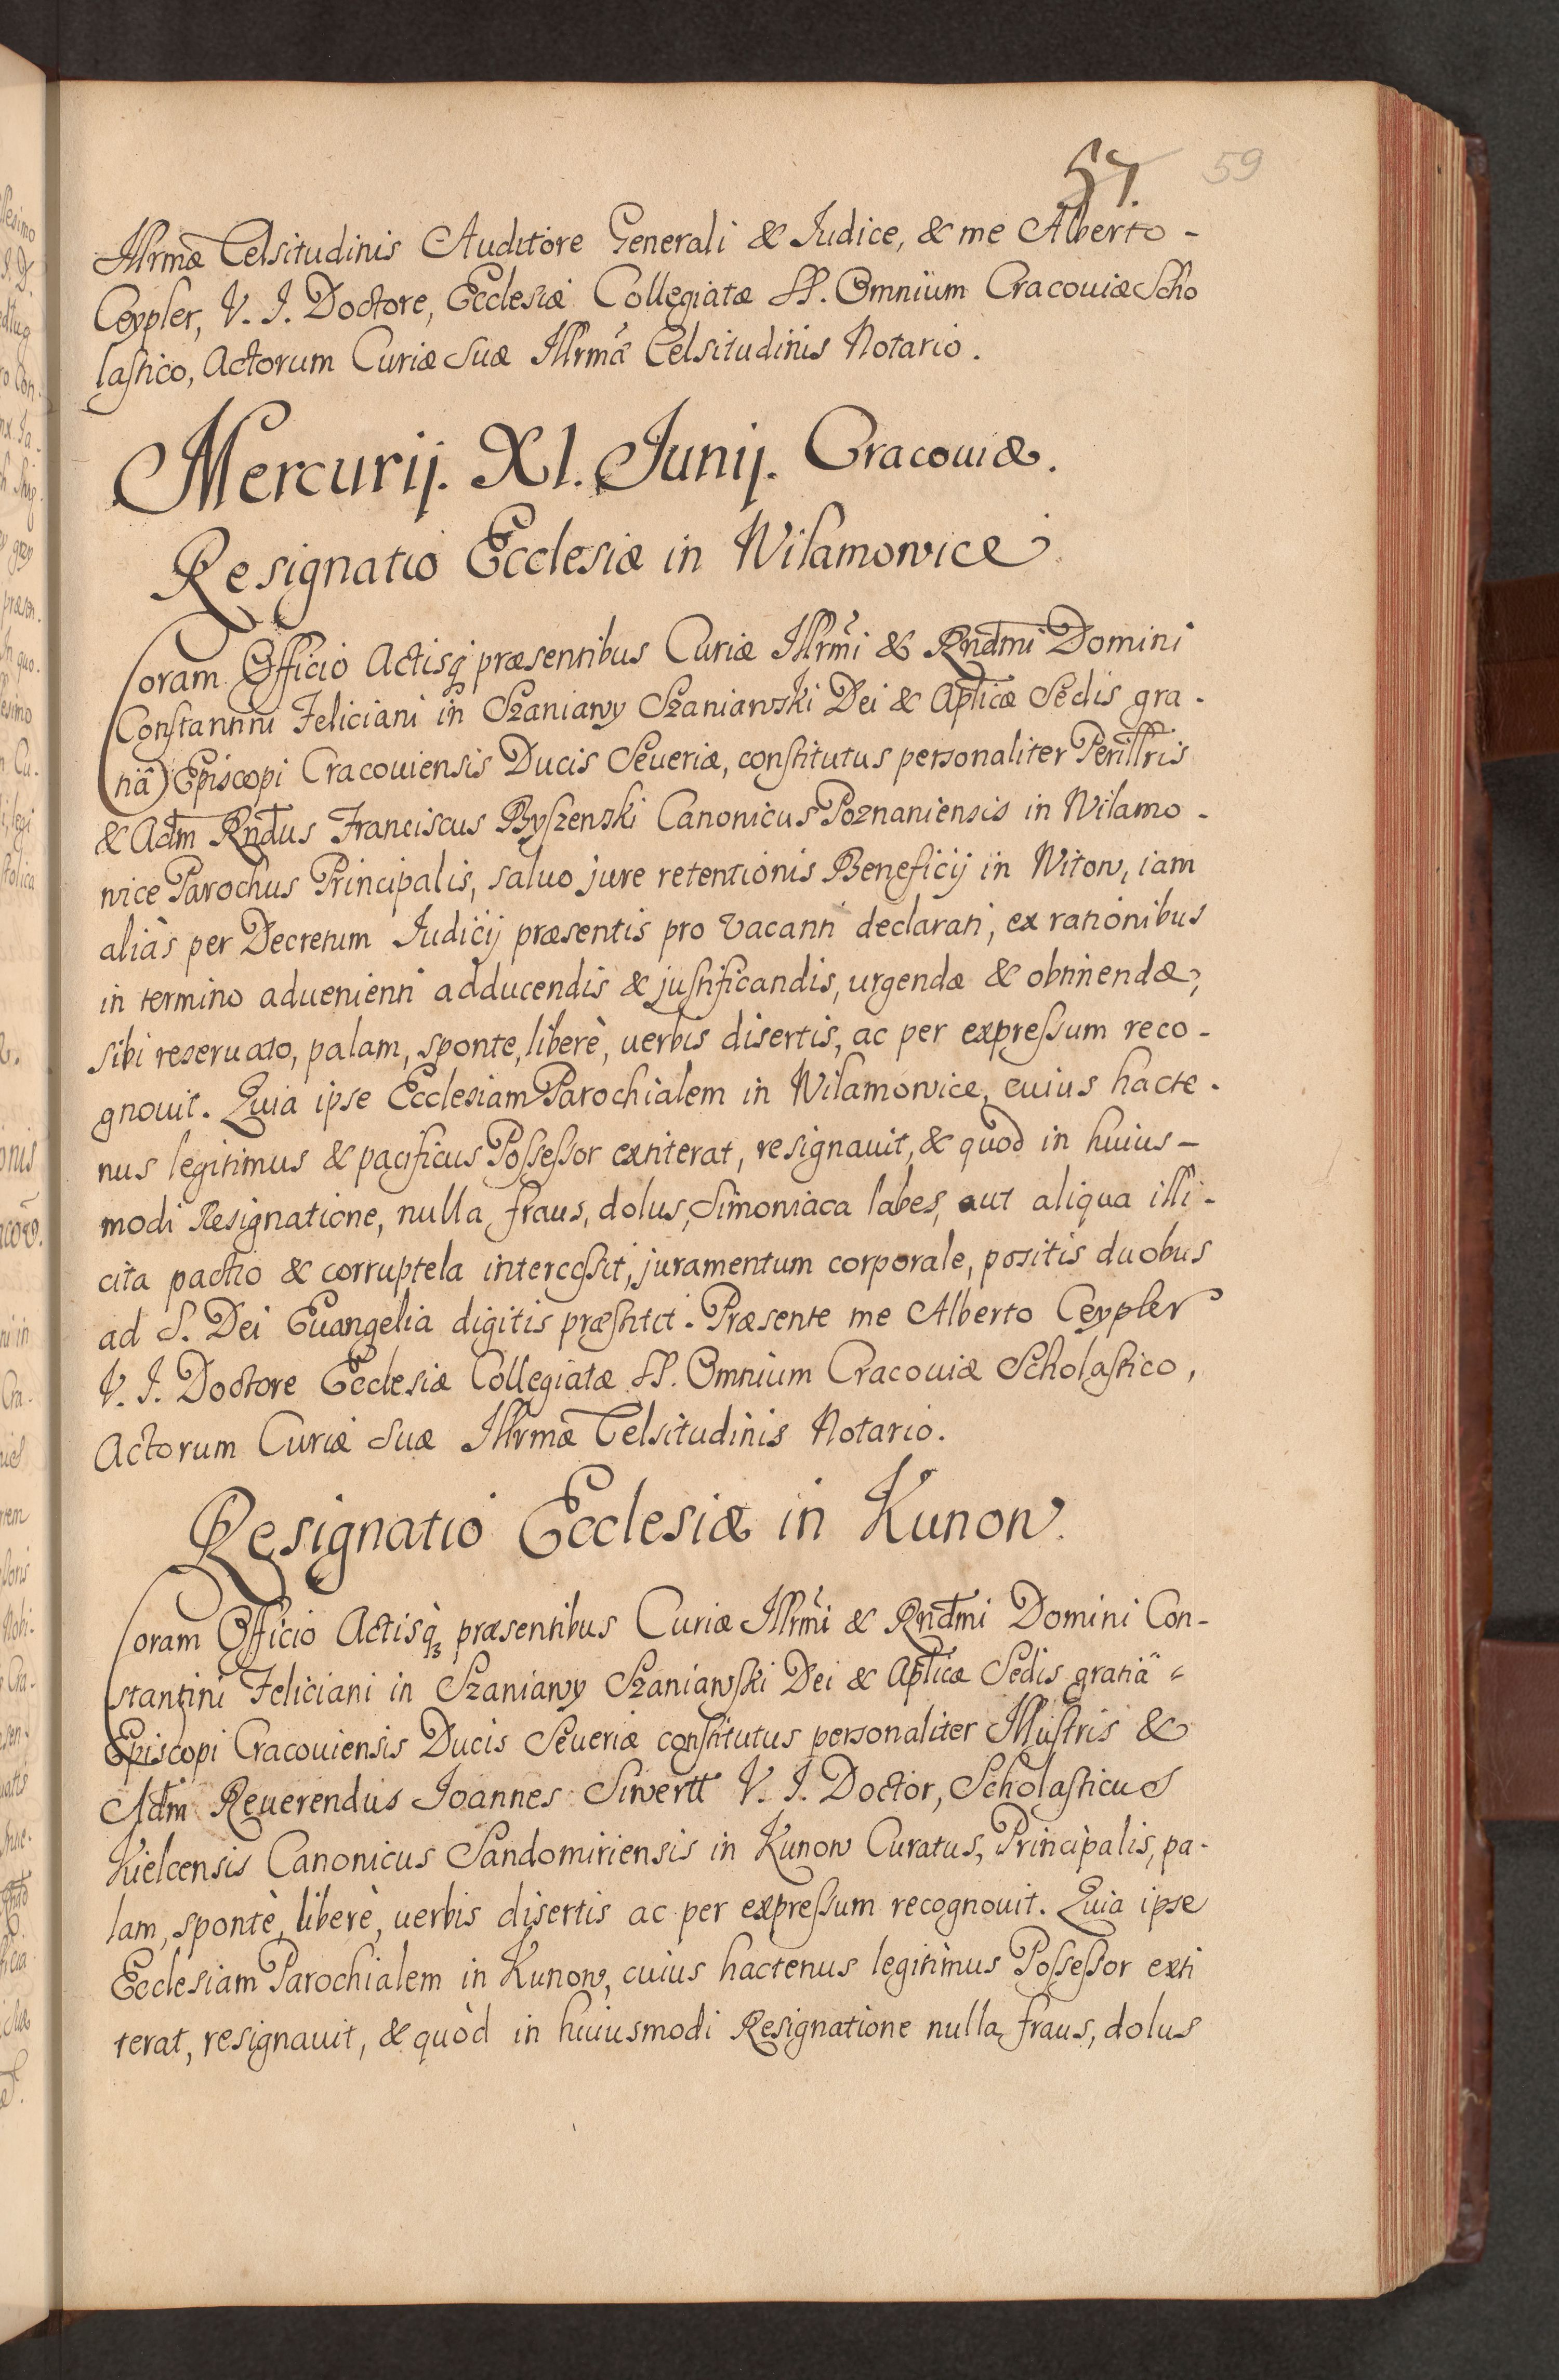 57. 59
Illrmæ Celsitudinis Auditore Generali & Judice, & me Alberto -
Ceypler, V. I. Doctore, Ecclesiæ Collegiatæ SS. Omnium Cracouiæ Scho
lastico, Actorum Curiæ Suæ Illrmæ Celsitudinis Notario.
Mercurij. XI. Junij. Cracouiæ.
Resignatio Ecclesiæ in Wilamowice
Coram Officio Actisq̃ præsentibus Curiæ Illrmi & Rndmi Domini
Constantini Feliciani in Szaniawy Szaniawski Dei & Aplicæ Sedis gra-
tiâ Episcopi Cracouiensis Ducis Seueriæ, constitutus personaliter Perillris
& Adm Rndus Franciscus Byszenski Canonicus Poznaniensis in Wilamo-
wice Parochus Principalis, saluo jure retentionis Beneficij in Witow, iam
aliàs per Decretum Iudicij præsentis pro vacanti declarati, ex rationibus
in termino aduenienti adducendis & justificandis, urgendæ & obtinendæ,
sibi reseruato, palam, sponte, liberè, uerbis disertis, ac per expressum reco-
gnouit. Quia ipse Ecclesiam Parochialem in Wilamowice, cuius hacte-
nus legitimus & pacificus Possessor extiterat, resignauit, & quod in huius-
modi Resignatione, nulla fraus, dolus, Simoniaca labes, aut aliqua illi-
cita pactio & corruptela intercessit, juramentum corporale, positis duobus
ad S. Dei Euangelia digitis præstitit. Præsente me Alberto Ceypler
V. I. Doctore Ecclesiæ Collegiatæ SS. Omnium Cracouiæ Scholastico,
Actorum Curiæ Suæ Illrmæ Celsitudinis Notario.
Resignatio Ecclesiæ in Kunow.
Coram Officio Actisq̃ præsentibus Curiæ Illrmi & Rndmi Domini Con-
stantini Feliciani in Szaniawy Szaniawski Dei & Aplicæ Sedis gratiâ
Episcopi Cracouiensis Ducis Seueriæ constitutus personaliter Illustris &
Adm Reuerendus Joannes Siwertt V. I. Doctor, Scholasticus
Kielcensis Canonicus Sandomiriensis in Kunow Curatus, Principalis, pa-
lam, spontè, liberè, uerbis disertis ac per expressum recognouit. Quia ipse
Ecclesiam Parochialem in Kunow, cuius hactenus legitimus Possessor exti
terat, resignauit, & quòd in huiusmodi Resignatione nulla fraus, dolus